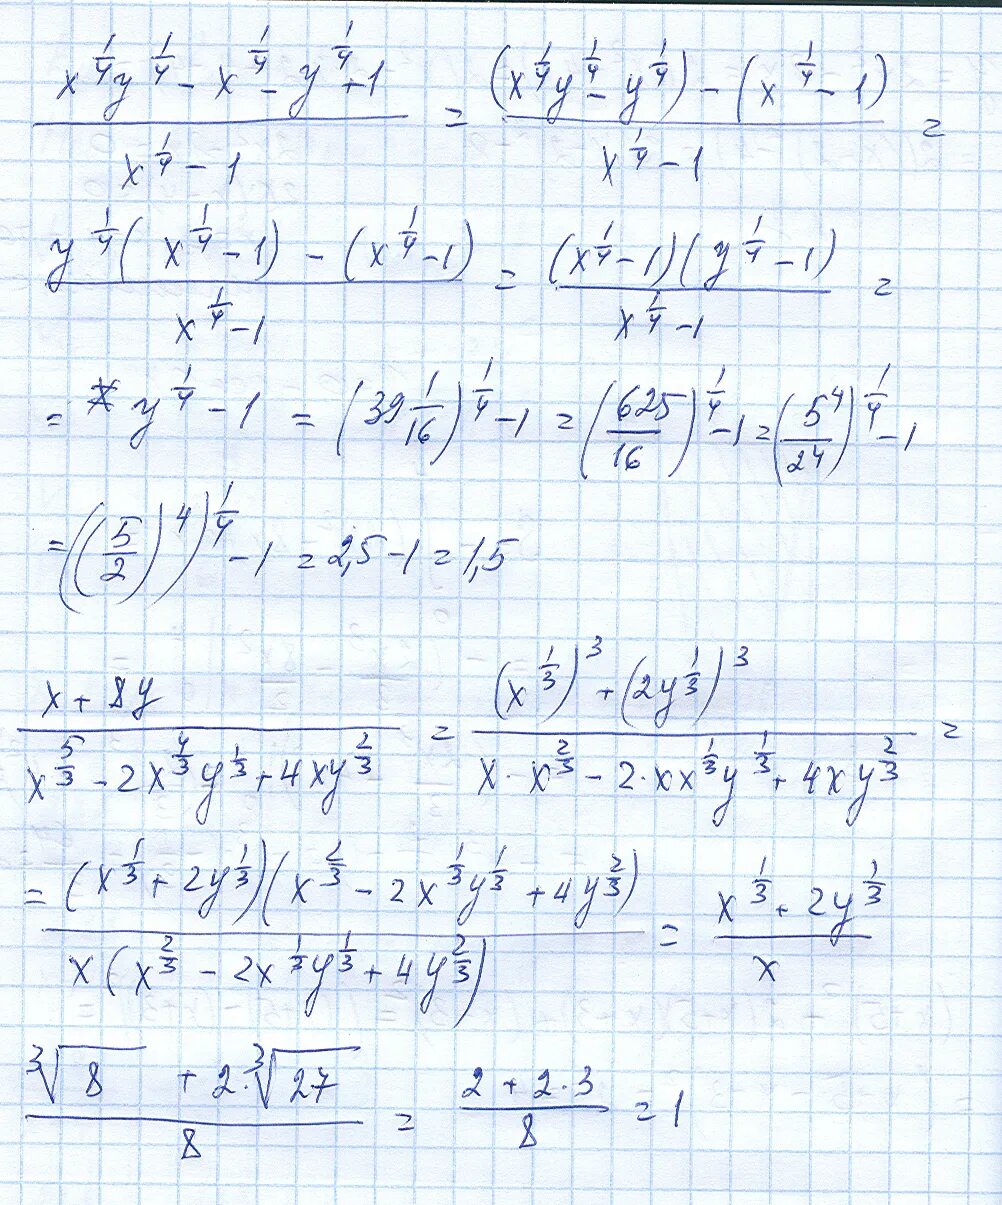 (x^(1/4)y^(1/4) - x^(1/4) - y^(1/4) + 1)/(x^(1/4) - 1) = ((x^(1/4)y^(1/4) - y^(1/4)) - (x^(1/4) - 1))/(x^(1/4) - 1) =
(y^(1/4)(x^(1/4) - 1) - (x^(1/4) - 1))/(x^(1/4) - 1) = ((x^(1/4) - 1)(y^(1/4) - 1))/(x^(1/4) - 1) =
= y^(1/4) - 1 = (39 1/16)^(1/4) - 1 = (625/16)^(1/4) - 1 = (5^4/2^4)^(1/4) - 1
= ((5/2)^4)^(1/4) - 1 = 2,5 - 1 = 1,5
(x + 8y)/(x^(5/3) - 2x^(4/3)y^(1/3) + 4xy^(2/3)) = ((x^(1/3))^3 + (2y^(1/3))^3)/(x · x^(2/3) - 2 · x x^(1/3)y^(1/3) + 4xy^(2/3)) =
= ((x^(1/3) + 2y^(1/3))(x^(2/3) - 2x^(1/3)y^(1/3) + 4y^(2/3)))/(x(x^(2/3) - 2x^(1/3)y^(1/3) + 4y^(2/3))) = (x^(1/3) + 2y^(1/3))/x
(∛8 + 2·∛27)/8 = (2 + 2·3)/8 = 1